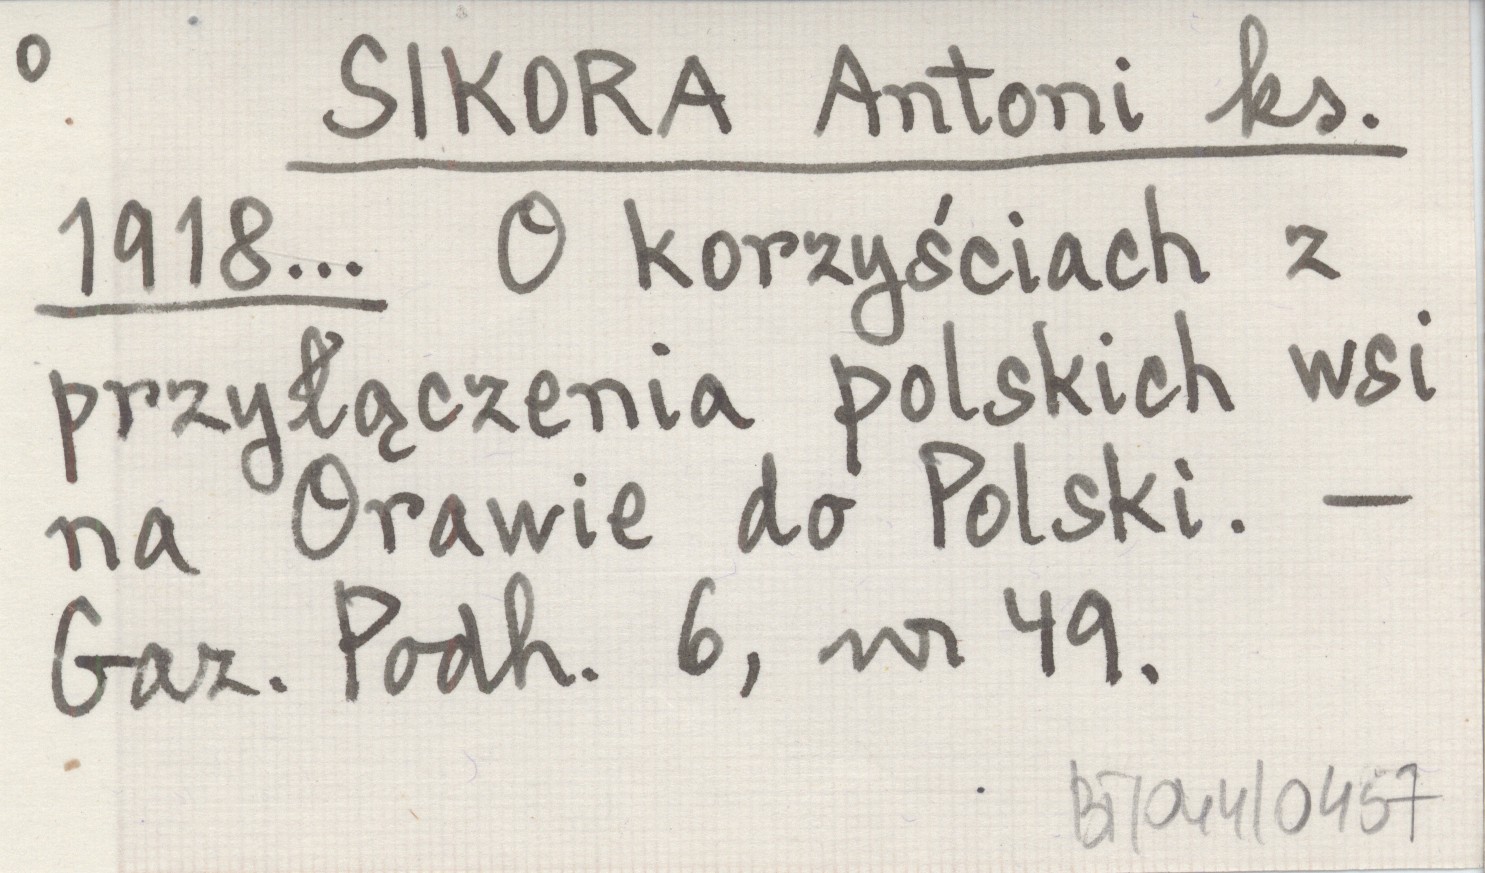 o
SIKORA Antoni ks.
1918... O korzyściach z
przyłączenia polskich wsi
na Orawie do Polski. —
Gaz. Podh. 6, nr 49.
BT/044/0457